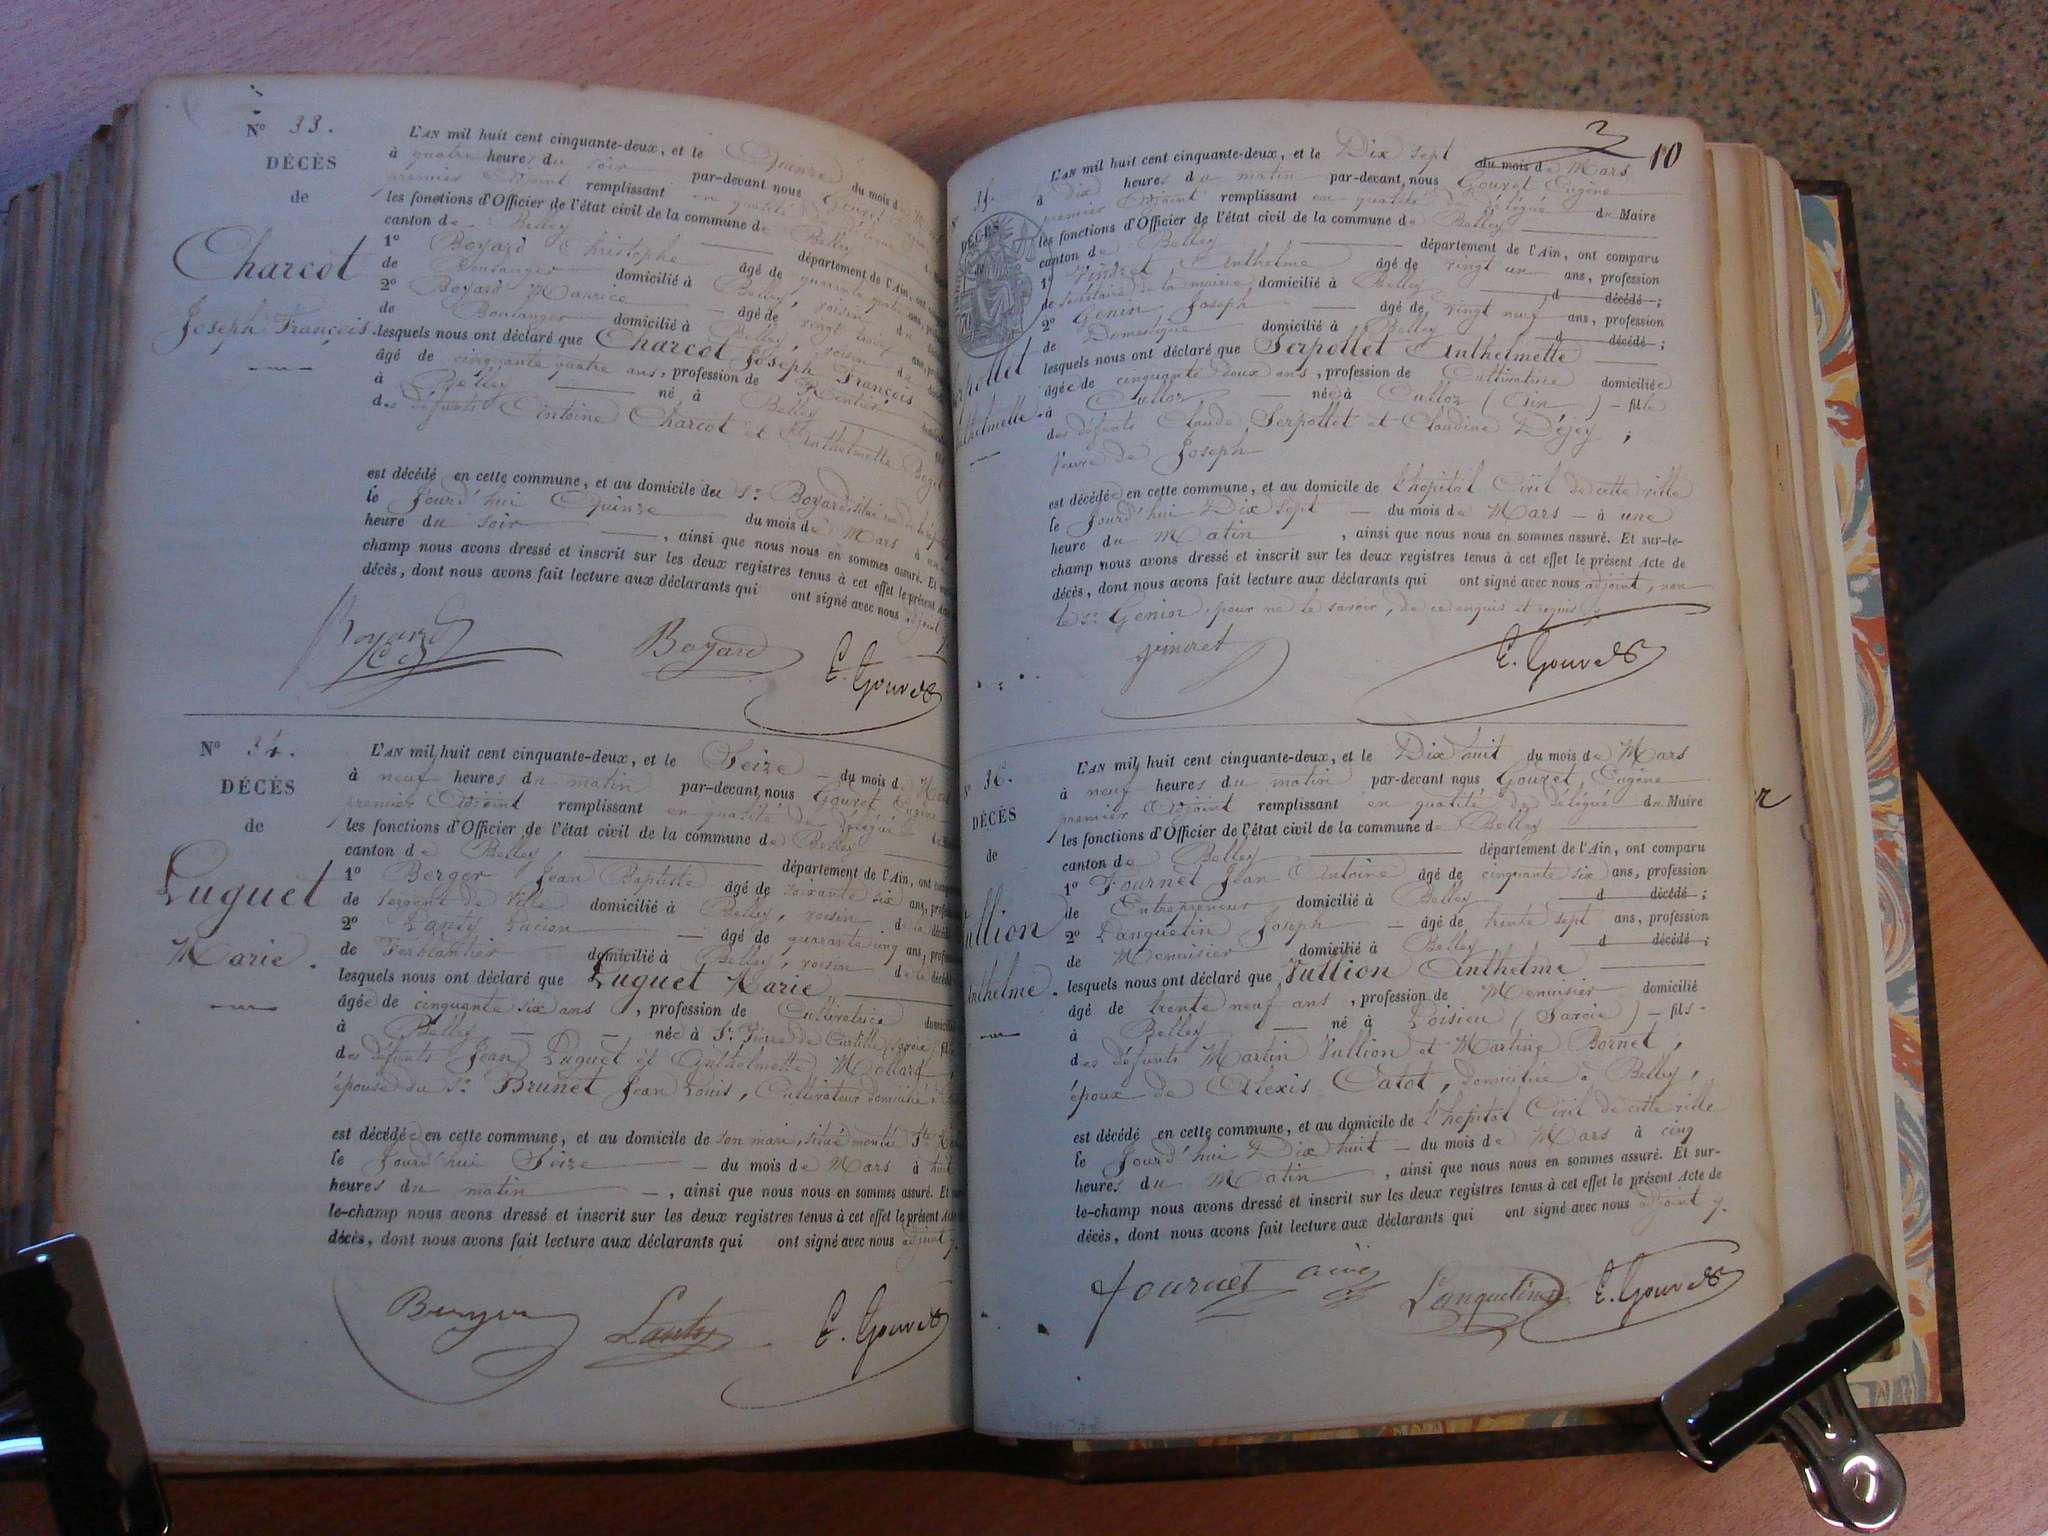 N° 33.
DÉCÈS
de
Charcot
Joseph François.
L'AN mil huit cent cinquante-deux, et le Quinze du mois de
à quatre heures du soir par-devant nous Gouvet
premier Adjoint remplissant en qualité
les fonctions d'Officier de l'état civil de la commune de Belley
canton de Belley département de l'Ain, ont
1° Boyard Christophe âgé de quarante
de Boulanger domicilié à Belley, voisin du
2° Boyard Maurice âgé de vingt huit ans,
de Boulanger domicilié à Belley, voisin
lesquels nous ont déclaré que Charcot Joseph François
âgé de cinquante quatre ans, profession de Rentier
à Belley né à Belley
des défunts Antoine Charcot et Anthelmette
est décédé en cette commune, et au domicile du Sr. Boyard
le Jourd'hui Quinze du mois de Mars à
heure du soir , ainsi que nous nous en sommes assuré. Et
champ nous avons dressé et inscrit sur les deux registres tenus à cet effet le présent Acte
décès, dont nous avons fait lecture aux déclarants qui ont signé avec nous adjoint
Boyard
E. Gouvet
N° 34.
DÉCÈS
de
Luguet
Marie.
L'AN mil huit cent cinquante-deux, et le Seize du mois de
à neuf heures du matin par-devant nous Gouvet Eugène
premier Adjoint remplissant en qualité de délégué
les fonctions d'Officier de l'état civil de la commune de Belley
canton de Belley département de l'Ain, ont
1° Berger Jean Baptiste âgé de soixante six ans,
de sergent de ville domicilié à Belley, voisin de la
2° Lanty Lucien âgé de quarante cinq ans,
de Ferblantier domicilié à Belley, voisin de la
lesquels nous ont déclaré que Luguet Marie
âgée de cinquante six ans , profession de Cultivatrice
à Belley née à St. Pierre de Curtille (Savoie)
des défunts Jean Luguet et Anthelmette Mollard
épouse du Sr. Brunet Jean Louis, Cultivateur domicilié
est décédée en cette commune, et au domicile de son mari, situé
le Jourd'hui Seize du mois de Mars à huit
heures du matin , ainsi que nous nous en sommes assuré. Et
le-champ nous avons dressé et inscrit sur les deux registres tenus à cet effet le présent Acte
décès, dont nous avons fait lecture aux déclarants qui ont signé avec nous adjoint
Lanty
E. Gouvet
10
35.
DÉCÈS
L'AN mil huit cent cinquante-deux, et le Dix sept du mois de Mars
à dix heures du matin par-devant nous Gouvet Eugène
premier Adjoint remplissant en qualité de délégué du Maire
les fonctions d'Officier de l'état civil de la commune de Belley
canton de Belley département de l'Ain, ont comparu
1° Anthelme âgé de vingt un ans, profession
de secrétaire de la mairie domicilié à Belley d décédé ;
2° Genin Joseph âgé de vingt neuf ans, profession
de Domestique domicilié à Belley d décédé ;
lesquels nous ont déclaré que Serpollet Anthelmette
âgée de cinquante deux ans , profession de Cultivatrice domiciliée
à Culloz née à Culloz (Ain) fille
des défunts Claude Serpollet et Claudine Déjey ;
Veuve de Joseph
est décédée en cette commune, et au domicile de l'hopital Civil de cette ville
le Jourd'hui Dix sept du mois de Mars à une
heure du Matin , ainsi que nous nous en sommes assuré. Et sur-le-
champ nous avons dressé et inscrit sur les deux registres tenus à cet effet le présent Acte de
décès, dont nous avons fait lecture aux déclarants qui ont signé avec nous adjoint, non
le Sr. Genin, pour ne le savoir, de ce enquis et requis
E. Gouvet
36.
DÉCÈS
de
L'AN mil huit cent cinquante-deux, et le Dix huit du mois de Mars
à neuf heures du matin par-devant nous Gouvet Eugène
premier Adjoint remplissant en qualité de délégué du Maire
les fonctions d'Officier de l'état civil de la commune de Belley
canton de Belley département de l'Ain, ont comparu
1° Fournet Jean Antoine âgé de cinquante six ans, profession
de Entrepreneur domicilié à Belley d décédé ;
2° Lanquetin Joseph âgé de trente sept ans, profession
de Menuisier domicilié à Belley d décédé ;
lesquels nous ont déclaré que Vullion Anthelme
âgé de trente neuf ans , profession de Menuisier domicilié
à Belley né à Loisieu (Savoie) fils
des défunts Martin Vullion et Martine Bornet,
époux de Alexis Catot, domiciliée à Belley,
est décédé en cette commune, et au domicile de l'hopital Civil de cette ville
le Jourd'hui Dix huit du mois de Mars à cinq
heures du Matin , ainsi que nous nous en sommes assuré. Et sur-
le-champ nous avons dressé et inscrit sur les deux registres tenus à cet effet le présent Acte de
décès, dont nous avons fait lecture aux déclarants qui ont signé avec nous adjoint
fournet ainé
Lanquetin
E. Gouvet